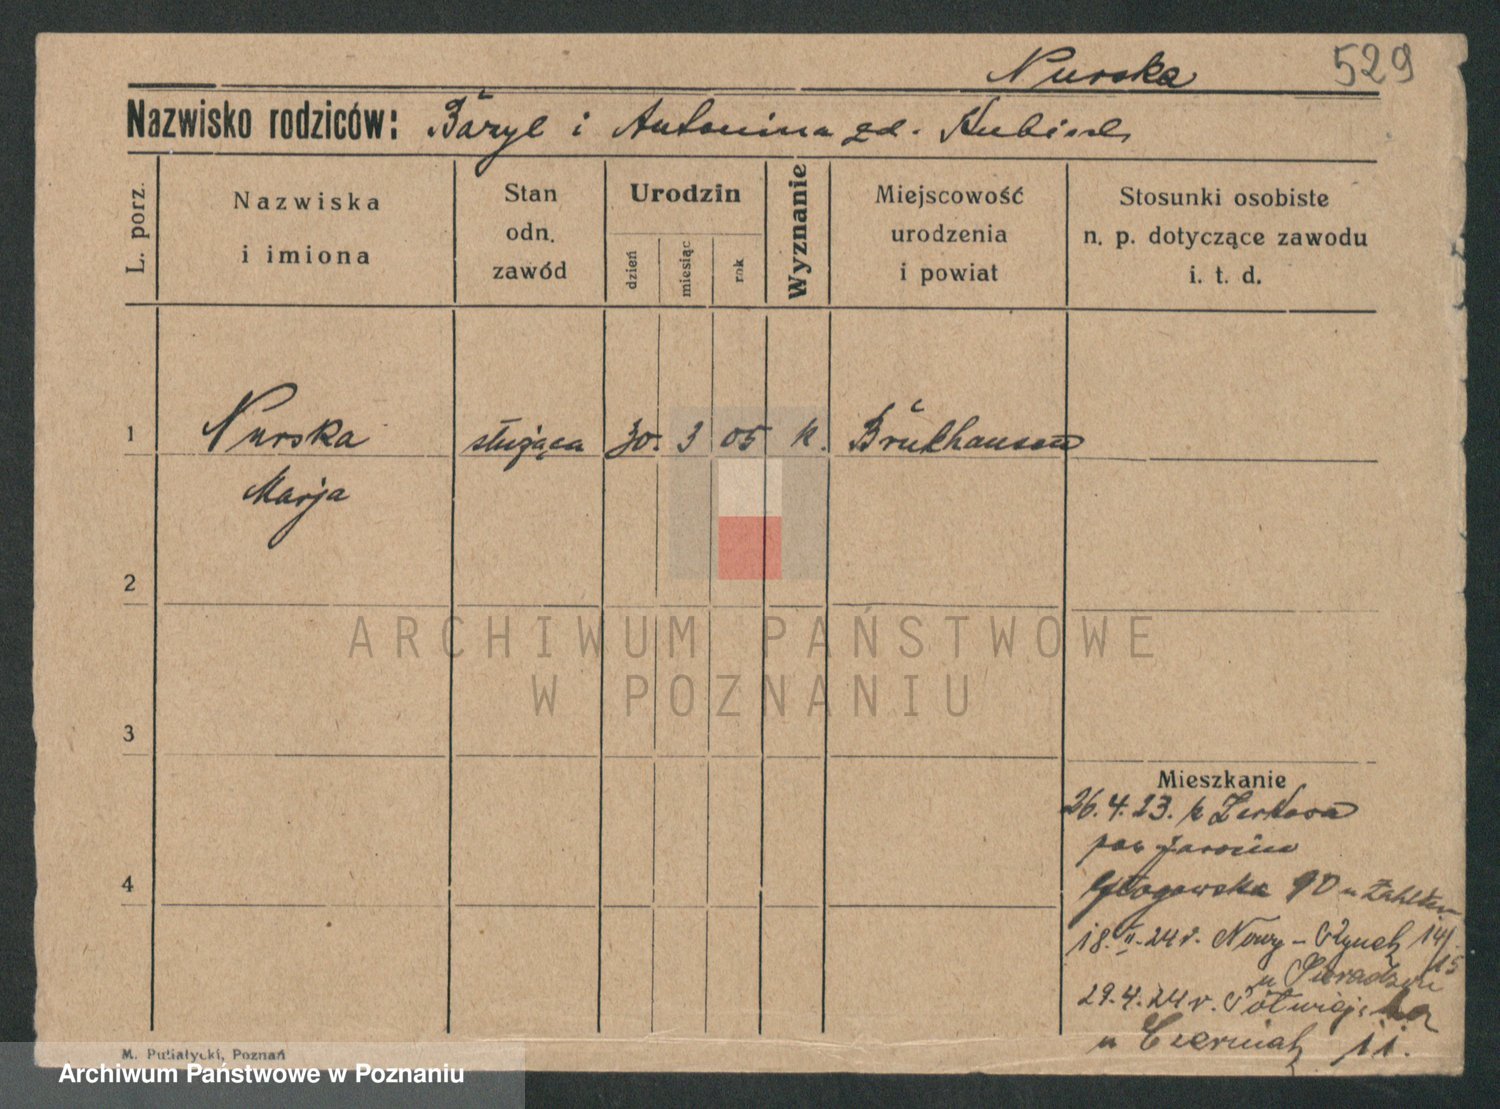 Nurska 529
Nazwisko rodziców: Bazyl i Antonina zd. Kubisch
L. porz.
Nazwiska
i imiona
Stan
odn.
zawód
Urodzin
dzień
miesiąc
rok
Wyznanie
Miejscowość
urodzenia
i powiat
Stosunki osobiste
n. p. dotyczące zawodu
i. t. d.
1 Nurska służąca 30. 3 05 k. Brükhausen
Marja
2
3
4
ARCHIWUM PAŃSTWOWE
W POZNANIU
Mieszkanie
26.4.23. z Żerkowa
pow Jarocin
Głogowska 90 u
18. II. 24 r. Nowy-Rynek 14/15
u
29.4.24 r. Półwiejska
u Czerniak 11.
M. Putiatycki, Poznań
Archiwum Państwowe w Poznaniu